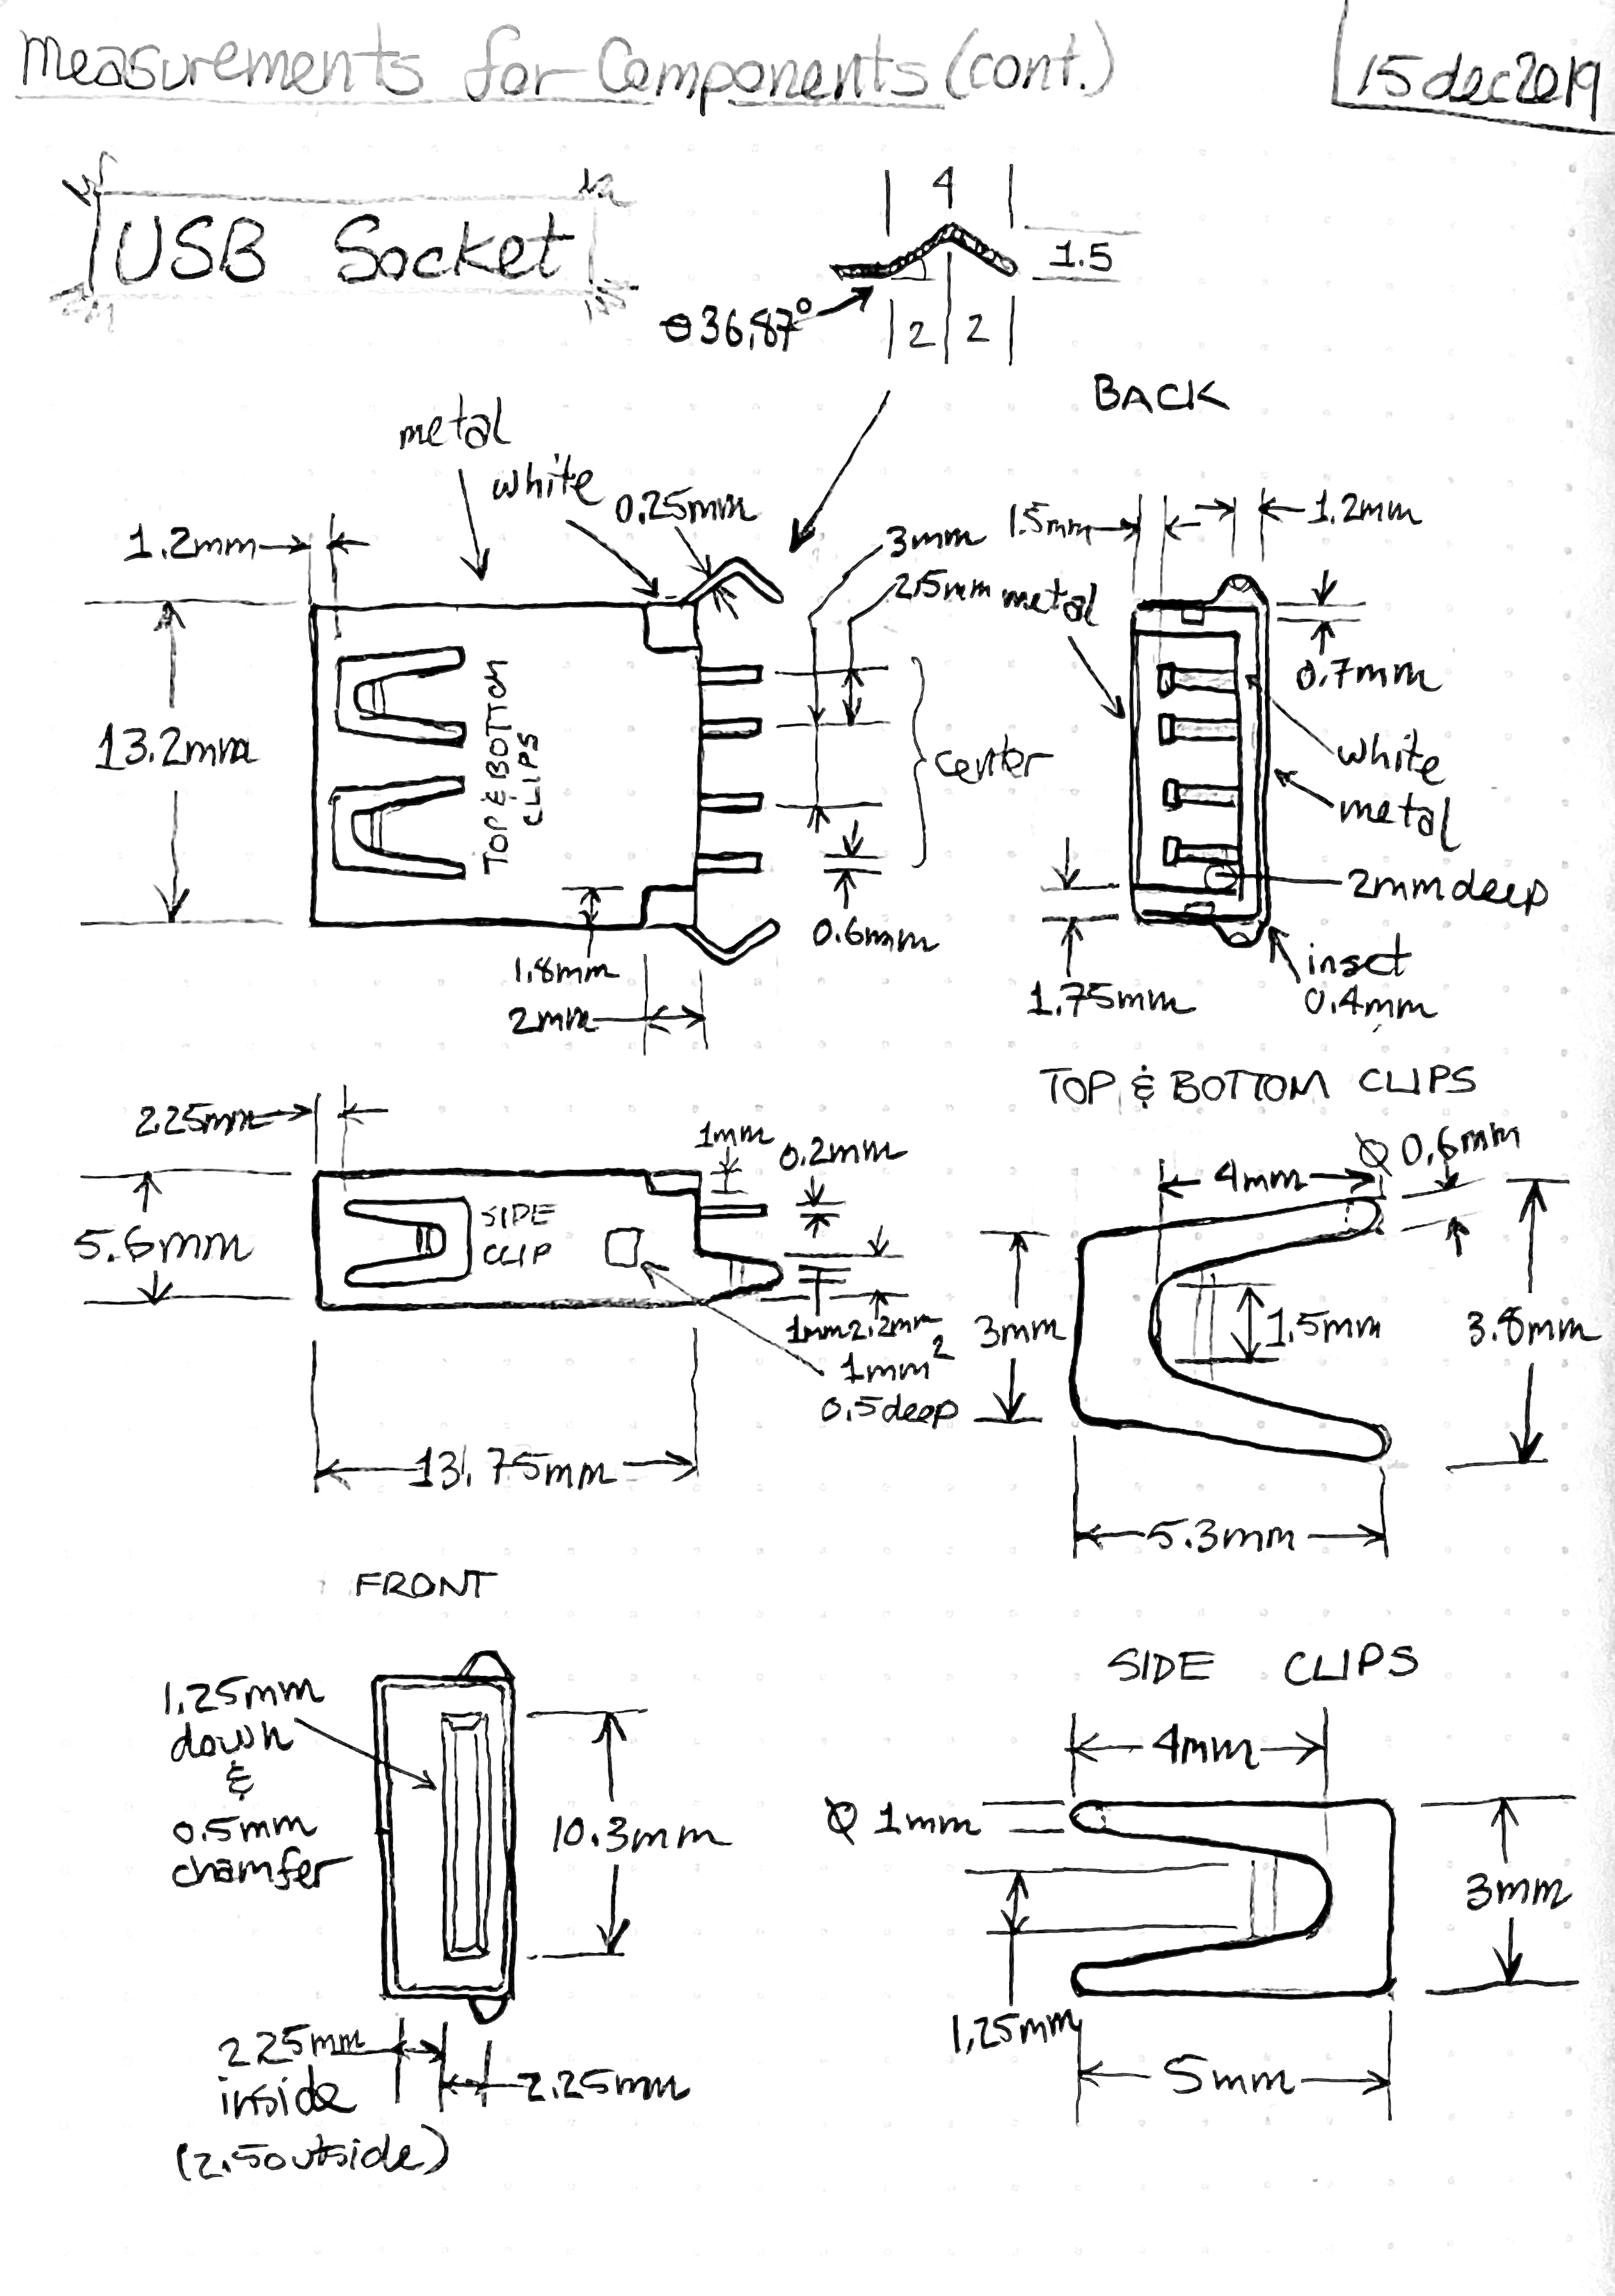 Measurements for Components (cont.)
15dec2019
USB Socket
4
1.5
θ36.87°
2
2
BACK
metal
white
0.25mm
1.2mm
3mm
2.5mm
1.5mm
1.2mm
metal
0.7mm
13.2mm
TOP & BOTTOM
CLIPS
center
white
metal
2mm deep
0.6mm
1.8mm
2mm
1.75mm
inset
0.4mm
TOP & BOTTOM CLIPS
2.25mm
1mm
0.2mm
Ø 0.6mm
4mm
5.6mm
SIDE
CLIP
1mm
2.2mm
3mm
1.5mm
3.8mm
1mm²
0.5deep
13.75mm
5.3mm
FRONT
SIDE CLIPS
1.25mm
down
&
0.5mm
chamfer
10.3mm
4mm
Ø 1mm
3mm
1.25mm
5mm
2.25mm
inside
(2.5outside)
2.25mm